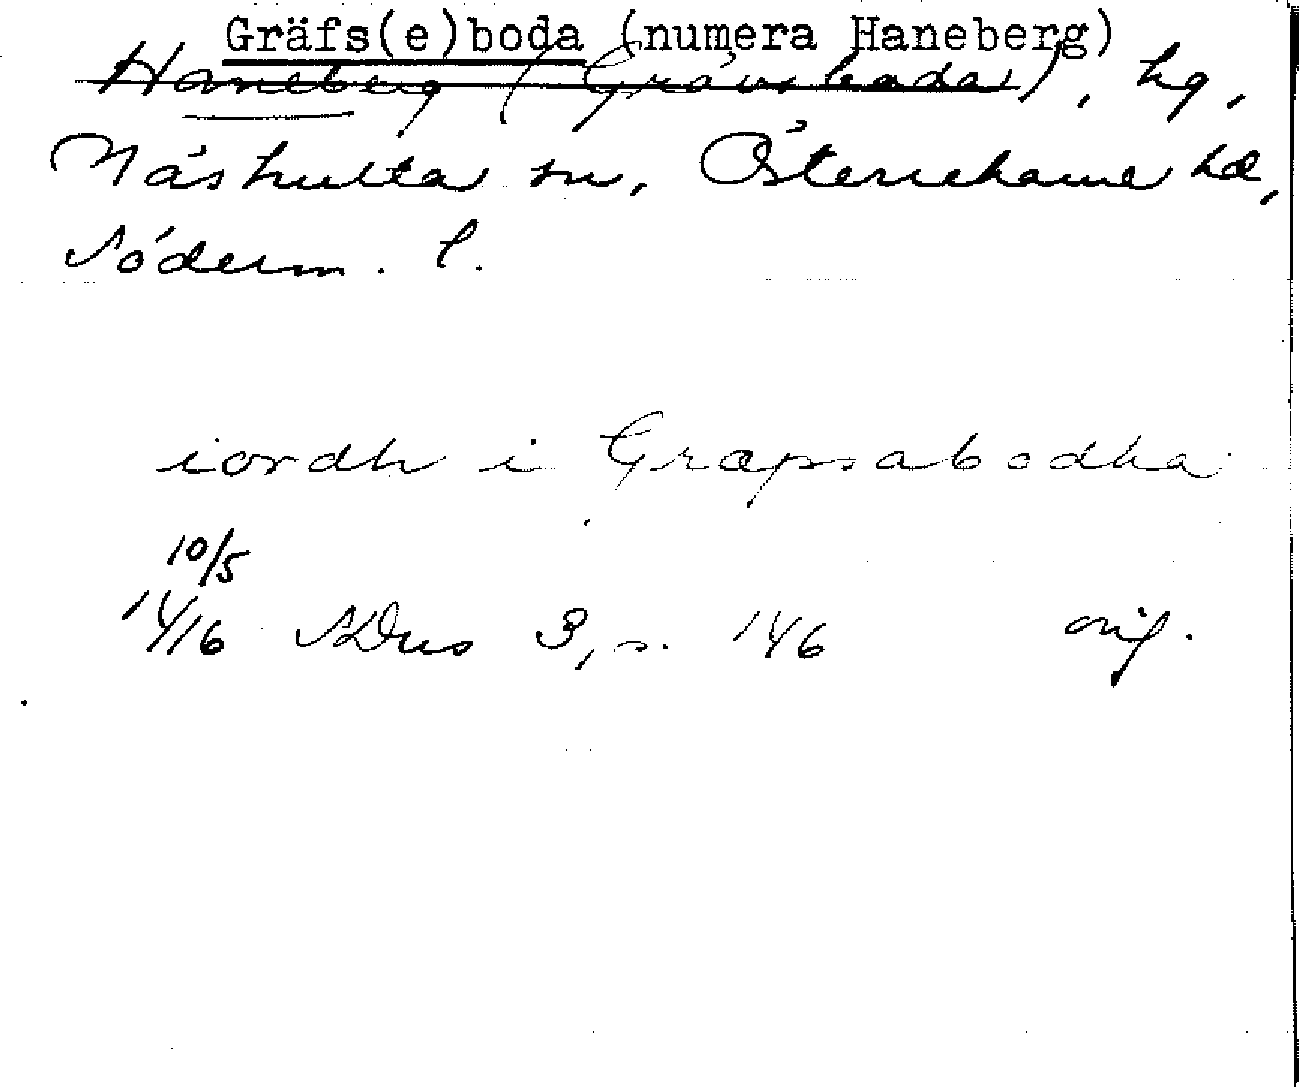 Gräfs(e)boda (numera Haneberg)
Haneberg (Grävsboda), hg,
Näshulta sn, Österrekarne hd,
Söderm. l.
iordh i Græpsabodha
10/5
1416 SDns 3, s. 146 orig.